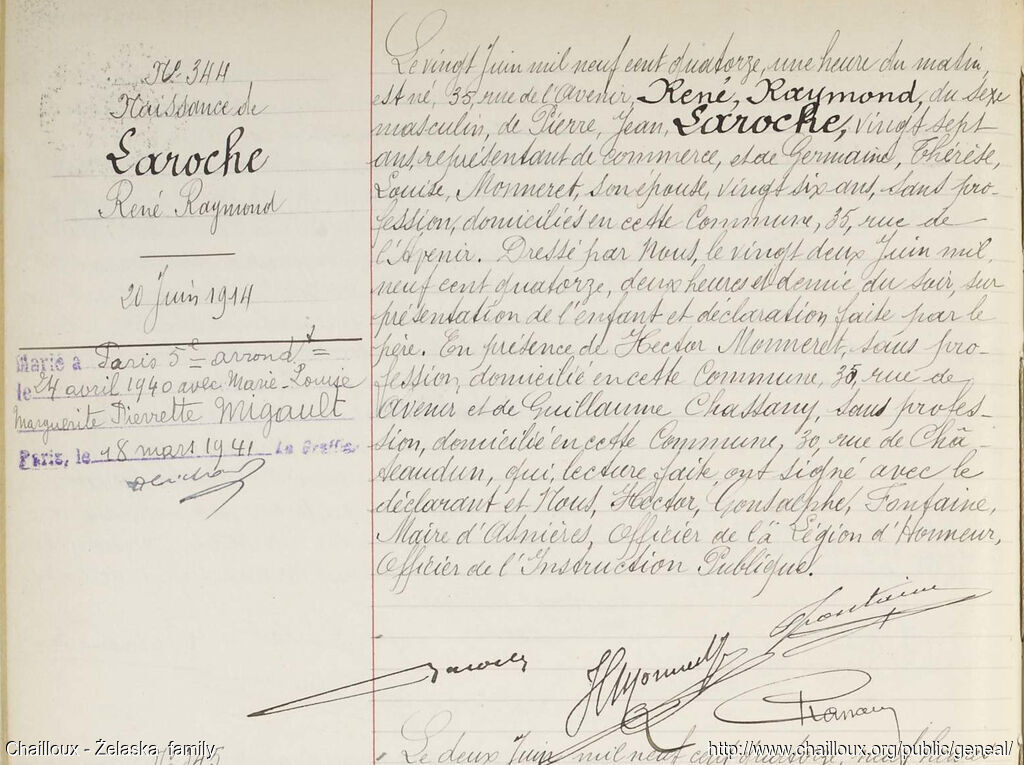 N° 344
Naissance de
Laroche
René Raymond
20 Juin 1914
Marié à Paris 5e arrondt
le 24 avril 1940 avec Marie-Louise
Marguerite Pierrette Migault
Paris, le 18 mars 1941 Le Greffier
Le vingt Juin mil neuf cent quatorze, une heure du matin,
est né, 35, rue de l'Avenir, René, Raymond, du sexe
masculin, de Pierre, Jean, Laroche, vingt sept
ans, représentant de commerce, et de Germaine, Thérèse,
Louise, Monneret, son épouse, vingt six ans, sans pro-
fession, domiciliés en cette Commune, 35, rue de
l'Avenir. Dressé par Nous, le vingt deux Juin mil
neuf cent quatorze, deux heures et demie du soir, sur
présentation de l'enfant et déclaration faite par le
père. En présence de Hector Monneret, sans pro-
fession, domicilié en cette Commune, 35, rue de
Avenir et de Guillaume Chassany, sans profes-
sion, domicilié en cette Commune, 30, rue de Châ-
teaudun, qui, lecture faite, ont signé avec le
déclarant et Nous, Hector, Gonsalphe, Fontaine,
Maire d'Asnières, Officier de la Légion d'Honneur,
Officier de l'Instruction Publique.
Fontaine
Laroche
HMonneret
Chassany
N° 345
Le deux Juin mil neuf cent quatorze, neuf heures
Chailloux - Żelaska family
http://www.chailloux.org/public/geneal/